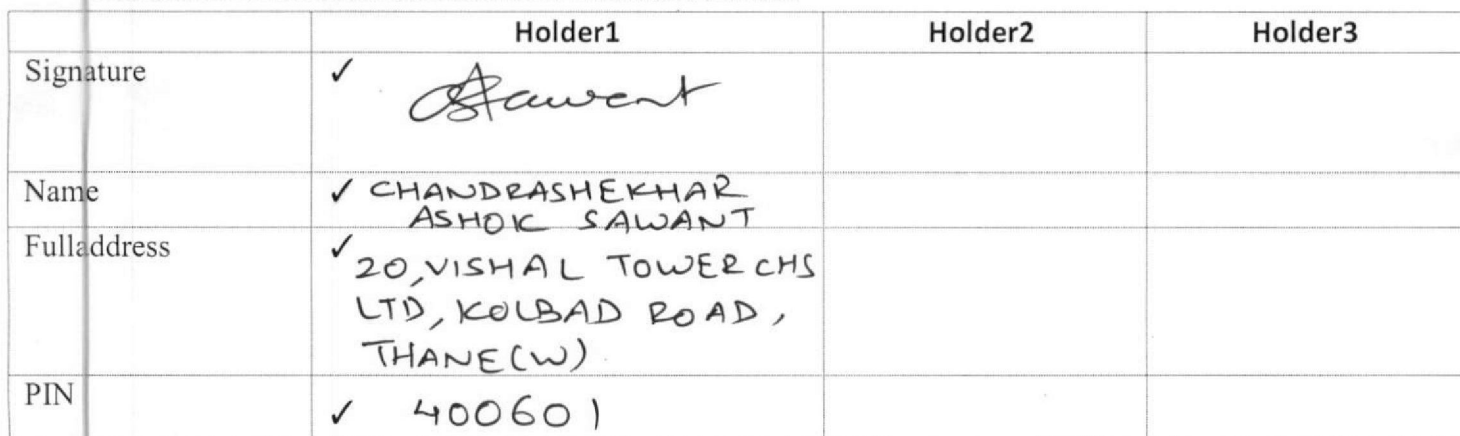 Holder1 Holder2 Holder3
Signature ✓ Sawant
Name ✓ CHANDRASHEKHAR
ASHOK SAWANT
Fulladdress ✓
20, VISHAL TOWER CHS
LTD, KOLBAD ROAD,
THANE(W)
PIN ✓ 400601